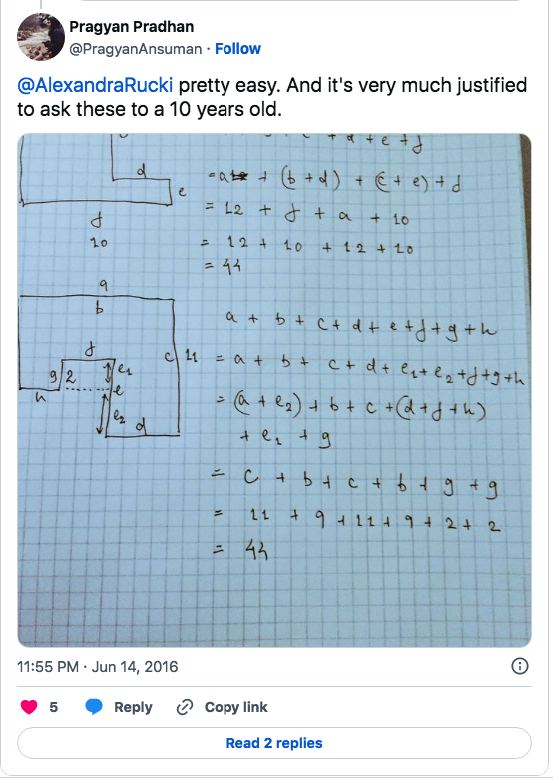 Pragyan Pradhan
@PragyanAnsuman · Follow
@AlexandraRucki pretty easy. And it's very much justified
to ask these to a 10 years old.
+ d + e + f
d
e
f
10
+ (b + d) + (c + e) + d
= 12 + f + a + 10
= 12 + 10 + 12 + 10
= 44
9
b
f
g 2
e1
c 11
e
h
e2
d
a + b + c + d + e + f + g + h
= a + b + c + d + e1 + e2 + f + g + h
= (a + e2) + b + c + (d + f + h)
+ e1 + g
= c + b + c + b + g + g
= 11 + 9 + 11 + 9 + 2 + 2
= 44
11:55 PM · Jun 14, 2016
5 Reply Copy link
Read 2 replies